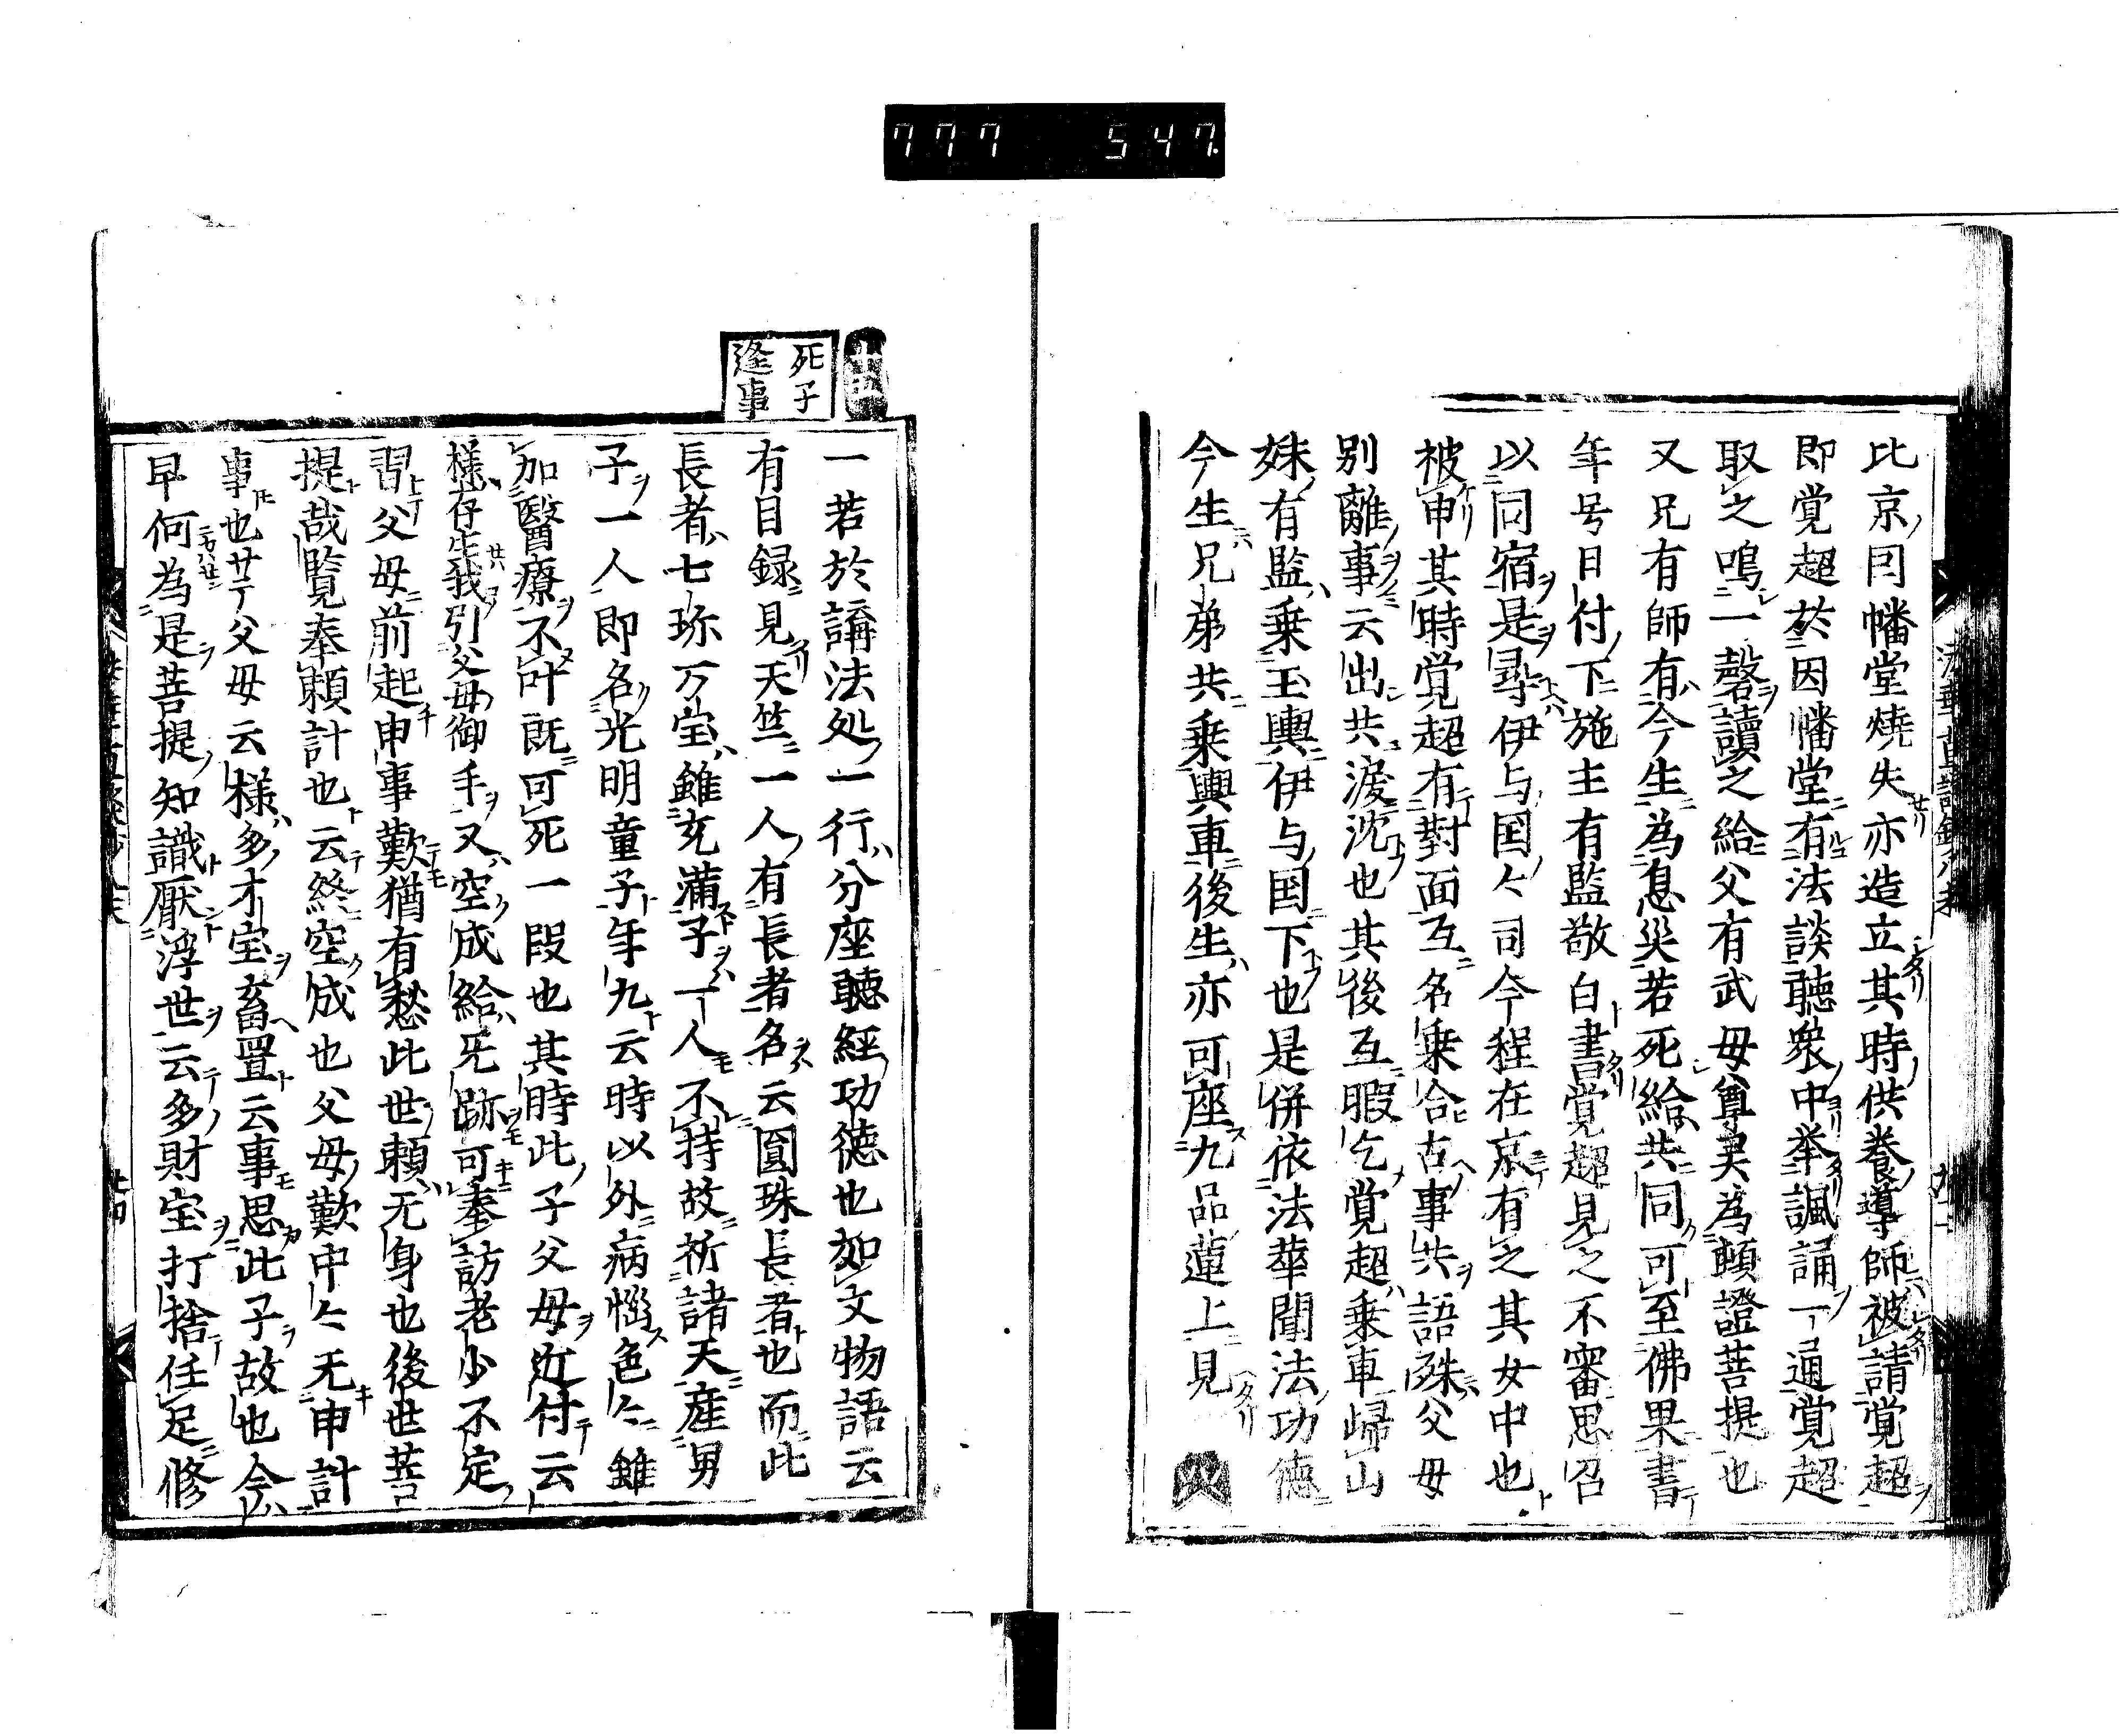 777 547
比京因幡堂燒失亦造立其時供養導師被請覚超
即覚超於因幡堂有法談聴衆中挙諷誦一通覚超
取之鳴一磬讀之給父有武母尊美為頓證菩提也
又兄有師有今生為息災若死給共同可至佛果書
年号日付下施主有監敬白書覚超見之不審思召
以同宿是尋伊与国々司今程在京有之其女中也
被申其時覚超有對面互名乗合古事共語殊父母
別離事云出共涙沈也其後互暇乞覚超乗車帰山
妹有監乗玉輿伊与国下也是併依法華聞法功徳
今生兄弟共乗輿車後生亦可座九品蓮上見
死子
逢事
一若於講法処一行分座聴經功徳也如文物語云
有目録見天竺一人有長者名云圓珠長者也而此
長者七珎万宝雖充滿子一人不持故祈諸天産男
子一人即名光明童子年九云時以外病惱色々雖
加醫療不叶既可死一段也其時此子父母近付云
様存生我引父母御手又空成給死跡可奉訪老少不定
習父母前起申事歎猶有愁此世頼无身也後世菩
提哉覧奉頼計也云終空成也父母歎中々无申計
事也廿丁父母云様多才宝畜置云事思此子故也今
早何為是菩提知識厭浮世云多財宝打捨任足修